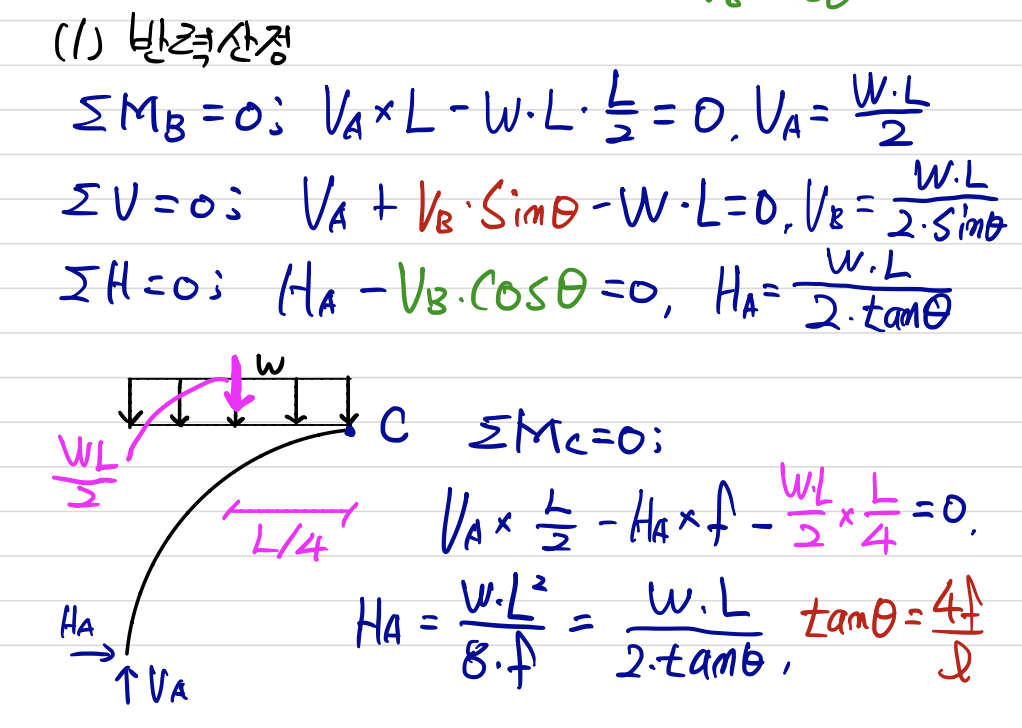 (1) 반력산정
ΣM_B = 0; V_A × L - W·L · L/2 = 0. V_A = W·L/2
ΣV = 0; V_A + V_B·Sinθ - W·L = 0. V_B = W·L/2·Sinθ
ΣH = 0; H_A - V_B·Cosθ = 0, H_A = W·L/2·tanθ
W
C ΣM_C = 0;
WL/2
V_A × L/2 - H_A × f - W·L/2 × L/4 = 0.
L/4
H_A = W·L²/8·f = W·L/2·tanθ, tanθ = 4f/l
H_A
V_A